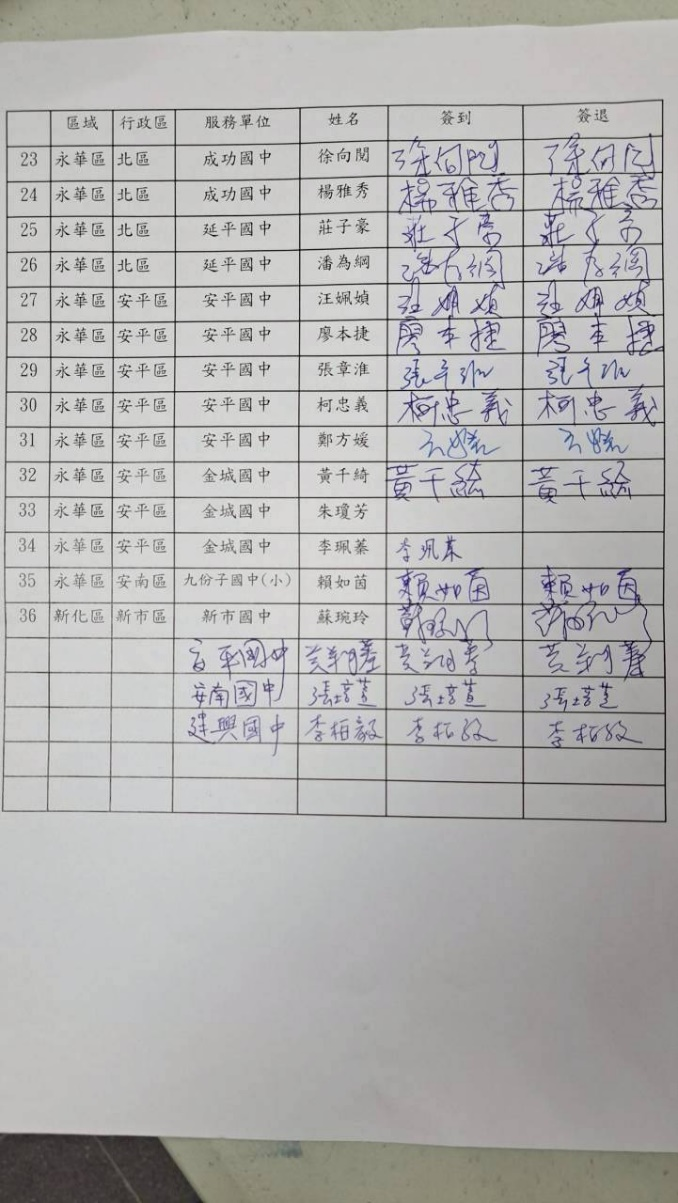 區域 行政區 服務單位 姓名 簽到 簽退
23 永華區 北區 成功國中 徐向閱 徐向閱 徐向閱
24 永華區 北區 成功國中 楊雅秀 楊雅秀 楊雅秀
25 永華區 北區 延平國中 莊子豪 莊子豪 莊子豪
26 永華區 北區 延平國中 潘為綱 潘為綱 潘為綱
27 永華區 安平區 安平國中 汪姵媜 汪姵媜 汪姵媜
28 永華區 安平區 安平國中 廖本捷 廖本捷 廖本捷
29 永華區 安平區 安平國中 張章淮
30 永華區 安平區 安平國中 柯忠義 柯忠義 柯忠義
31 永華區 安平區 安平國中 鄭方媛
32 永華區 安平區 金城國中 黃千綺 黃千綺 黃千綺
33 永華區 安平區 金城國中 朱瓊芳
34 永華區 安平區 金城國中 李珮蓁 李珮蓁
35 永華區 安南區 九份子國中(小) 賴如茵 賴如茵 賴如茵
36 新化區 新市區 新市國中 蘇琬玲
國中
安南國中 張培萱 張培萱 張培萱
建興國中 李柏毅 李柏毅 李柏毅